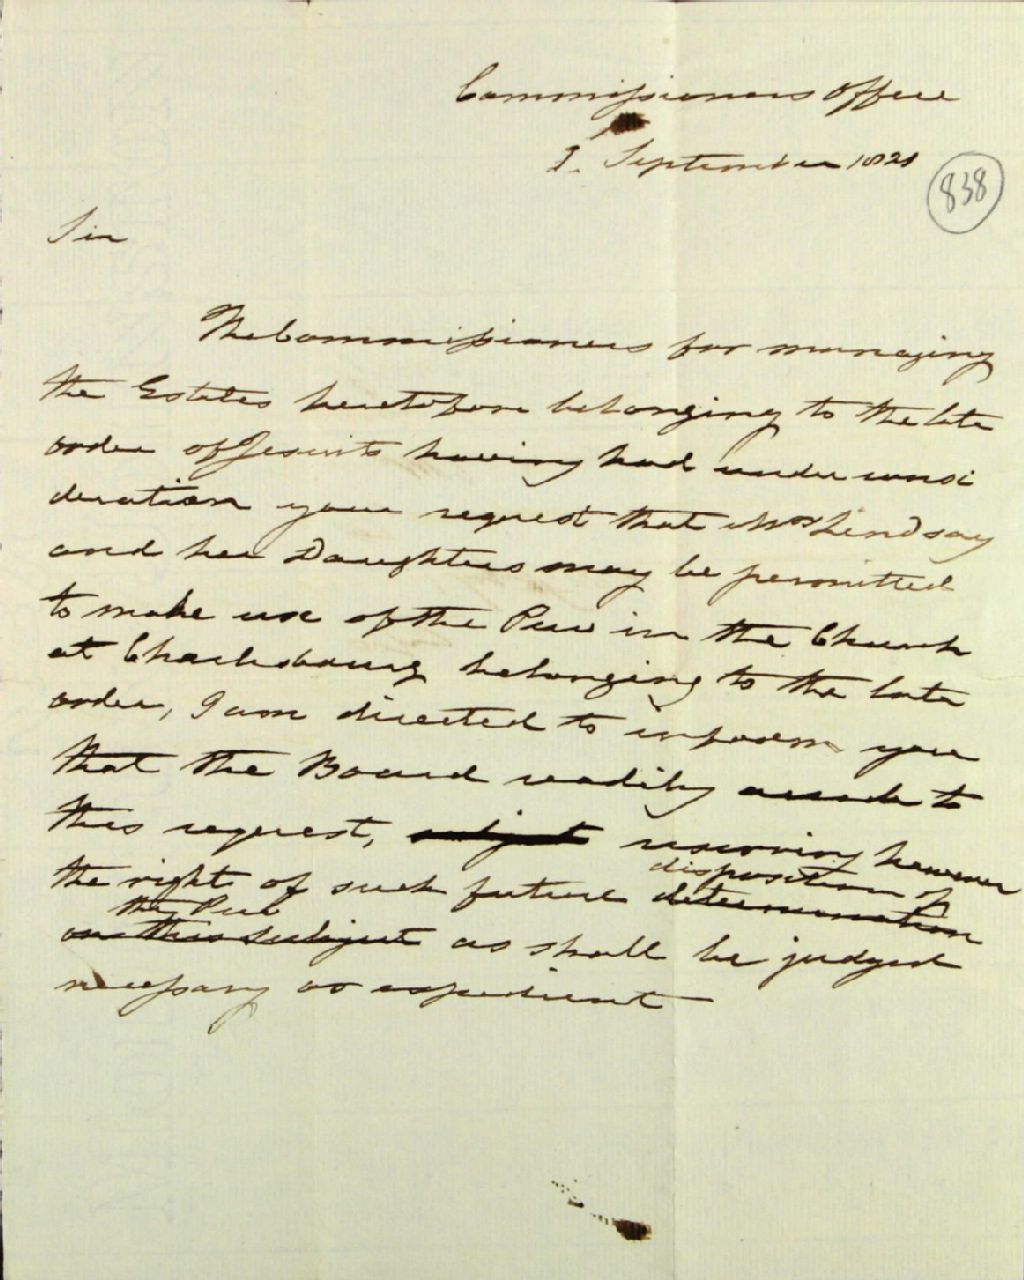 Commissioners Office
1. September 1821
838
Sir
The Commissioners for managing
the Estates heretofore belonging to the late
order of Jesuits having had under consi
deration your request that Mrs Lindsay
and her Daughters may be permitted
to make use of the Pew in the Church
at Charlesbourg belonging to the late
order, I am directed to inform you
that the Board readily accede to
this request, subject reserving however
the right of such future determination
disposition of
on this subject as shall be judged
the Pew
necessary or expedient